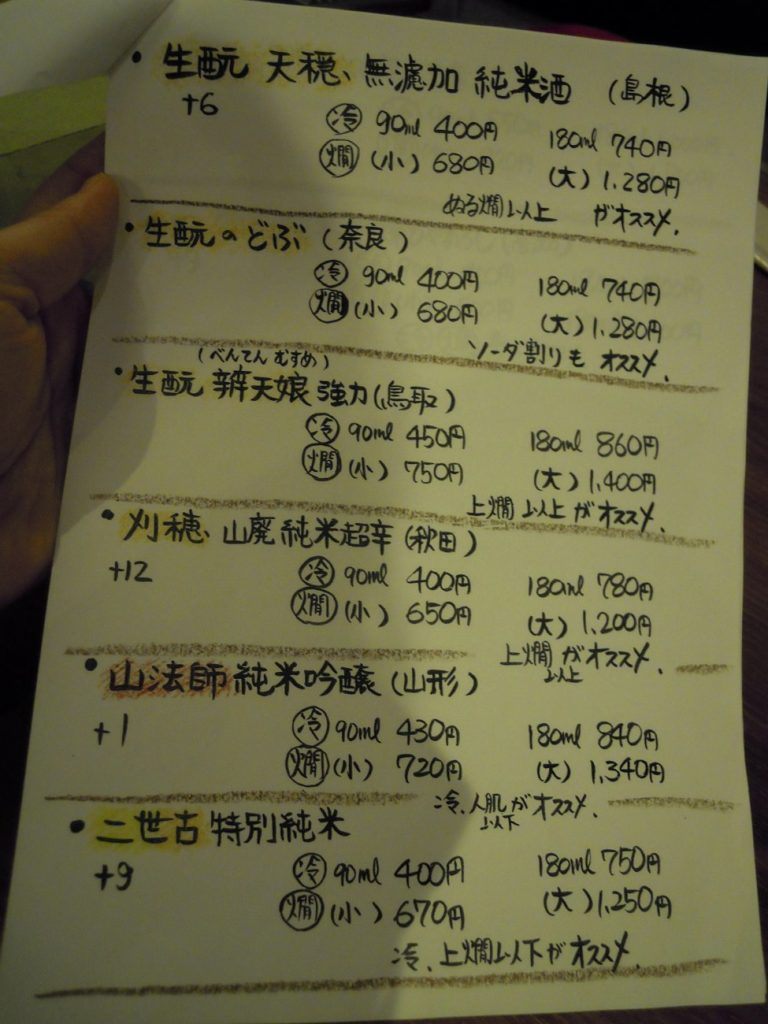 ・生酛 天穏、無濾加 純米酒 (島根)
+6
冷 90ml 400円 180ml 740円
燗 (小) 680円 (大) 1,280円
ぬる燗以上 がオススメ.
・生酛のどぶ (奈良)
冷 90ml 400円 180ml 740円
燗 (小) 680円 (大) 1,280円
ソーダ割りも オススメ.
(べんてん むすめ)
・生酛 辨天娘 強力 (鳥取)
冷 90ml 450円 180ml 860円
燗 (小) 750円 (大) 1,400円
上燗以上がオススメ.
・刈穂、山廃純米超辛 (秋田)
+12
冷 90ml 400円 180ml 780円
燗 (小) 650円 (大) 1,200円
上燗以上がオススメ.
・山法師 純米吟醸 (山形)
+1
冷 90ml 430円 180ml 840円
燗 (小) 720円 (大) 1,340円
冷、人肌以下がオススメ.
・二世古 特別純米
+9
冷 90ml 400円 180ml 750円
燗 (小) 670円 (大) 1,250円
冷、上燗以下がオススメ.